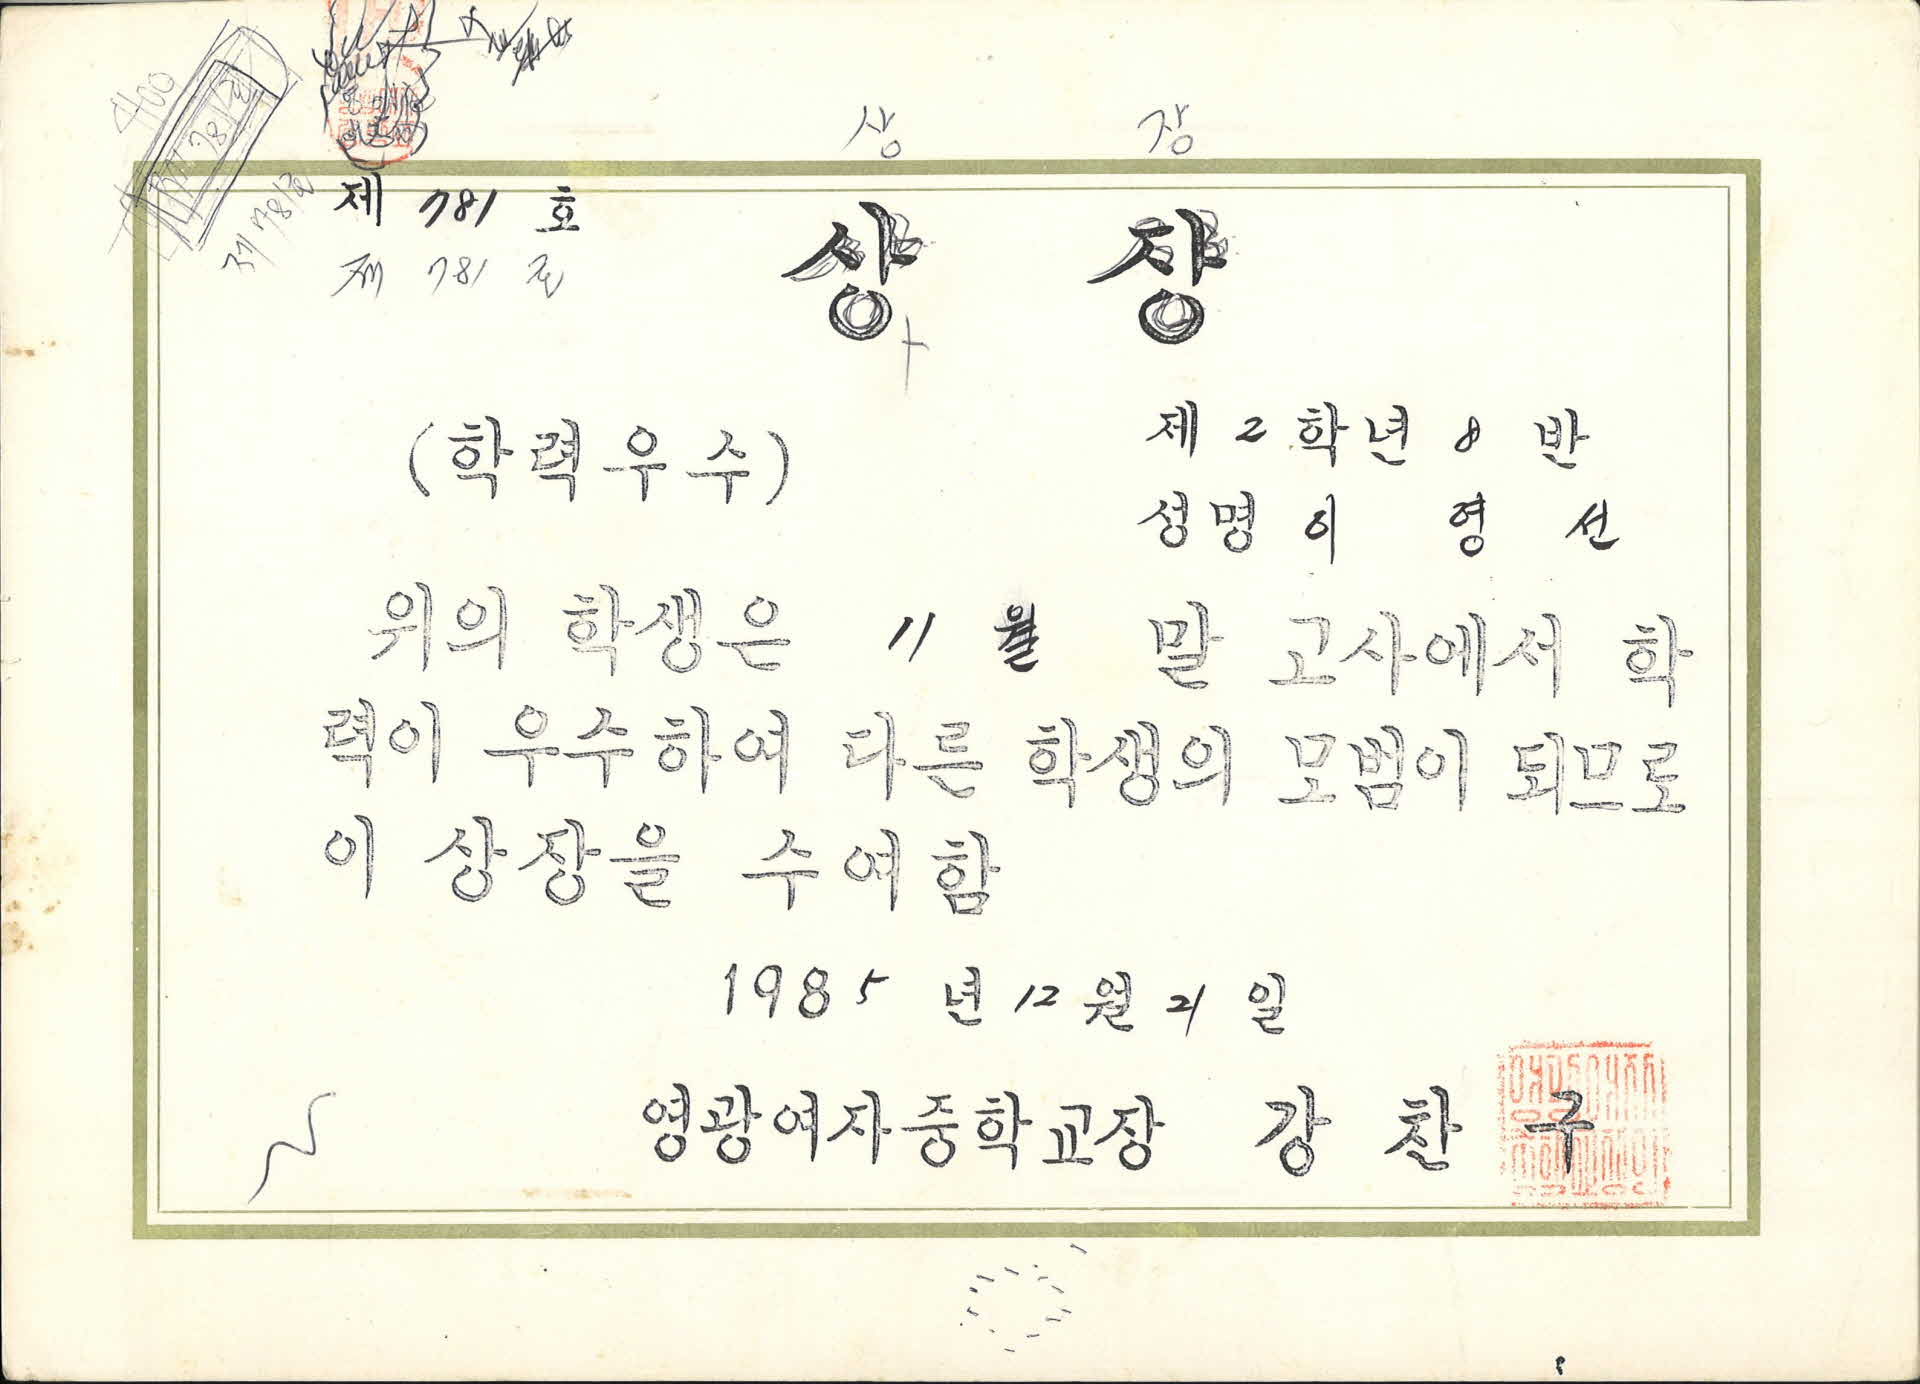 상 장
400
제 781호
제 781호
제 781 호
제 781 호
상 장
(학력우수)
제 2 학년 8 반
성명 이 영 선
위의 학생은 11 월 말 고사에서 학
력이 우수하여 다른 학생의 모범이 되므로
이 상장을 수여함
1985 년 12 월 21 일
영광여자중학교장 강 찬 구